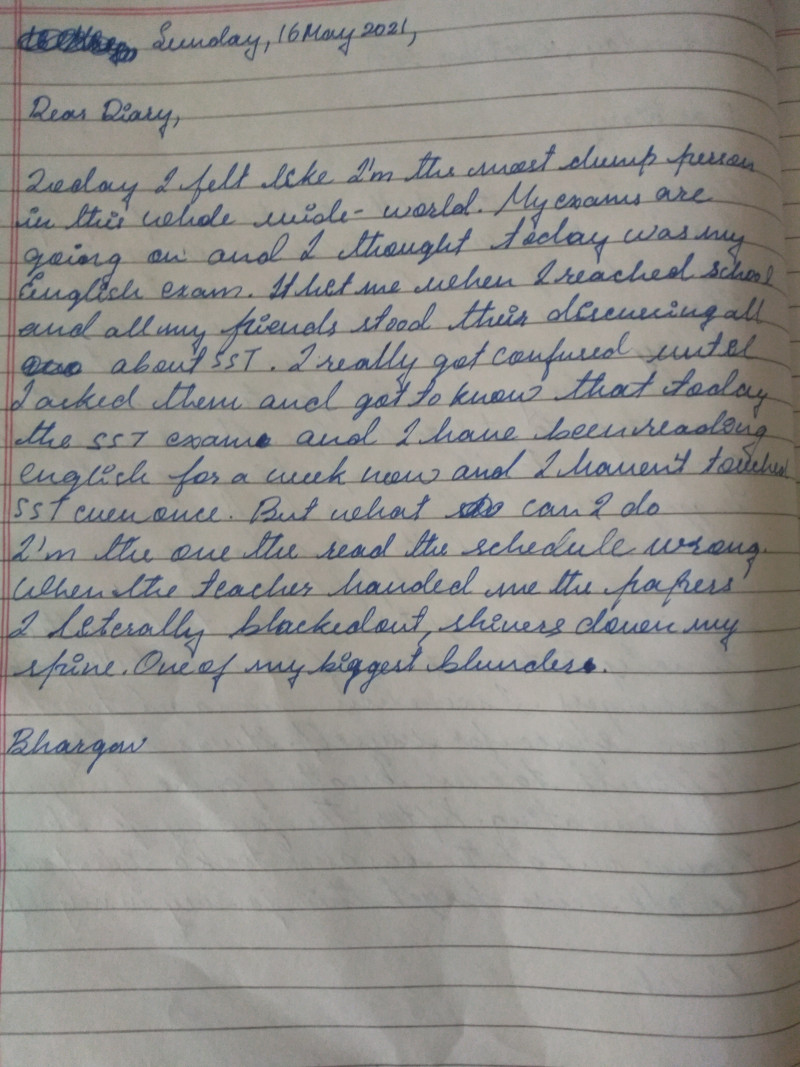 Sunday, 16 May 2021,
Dear Diary,
Today I felt like I'm the most dump person
in this whole wide-world. My exams are
going on and I thought today was my
English exam. It hit me when I reached school
and all my friends stood their discussing all
about SST. I really got confused until
I asked them and got to know that today
the SST exam and I have been reading
english for a week now and I haven't touched
SST even once. But what can I do
I'm the one the read the schedule wrong.
When the teacher handed me the papers
I literally blacked out, shivers down my
spine. One of my biggest blunder.
Bhargav